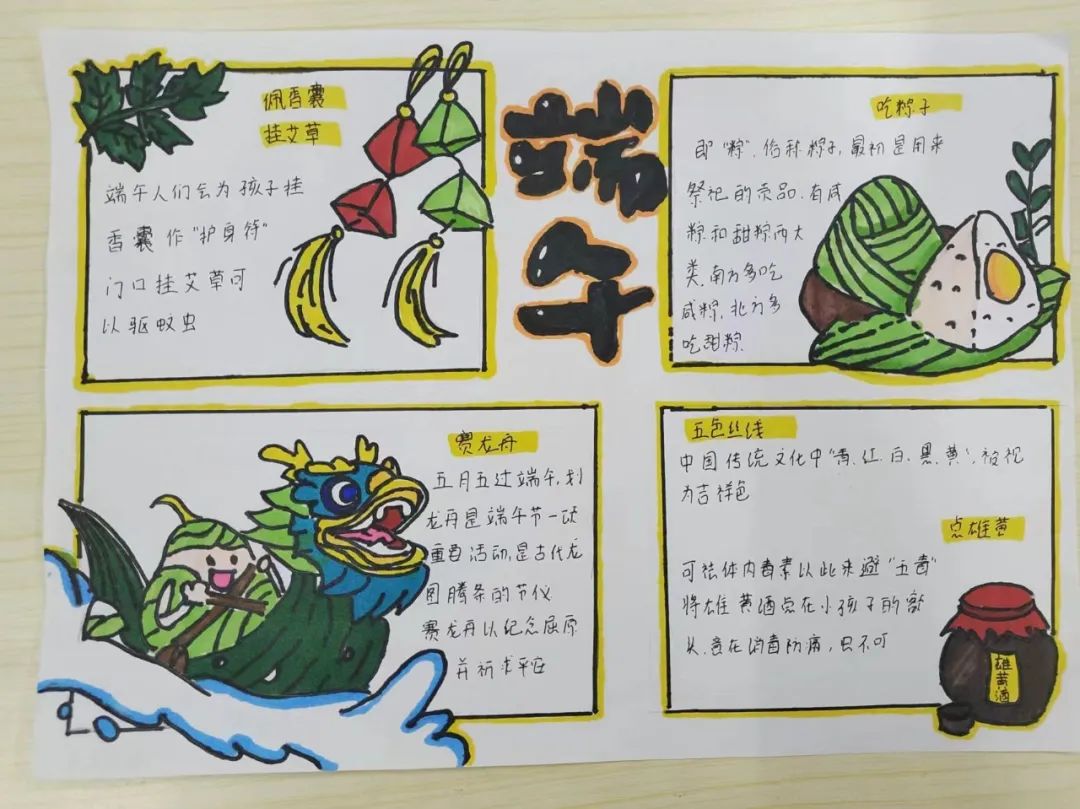 佩香囊
挂艾草
端午人们会为孩子挂
香囊作"护身符"
门口挂艾草可
以驱蚊虫
端午
吃粽子
即"粽",俗称粽子,最初是用来
祭祀的贡品.有咸
粽和甜粽两大
类,南方多吃
咸粽,北方多
吃甜粽.
赛龙舟
五月五过端午,划
龙舟是端午节一项
重要活动,是古代龙
图腾祭的节仪
赛龙舟以纪念屈原
并祈求平安
五色丝线
中国传统文化中"青.红.白.黑.黄",被视
为吉祥色
点雄黄
可祛体内毒素以此来避"五毒"
将雄黄酒点在小孩子的额
头,意在消毒防病,
雄黄酒